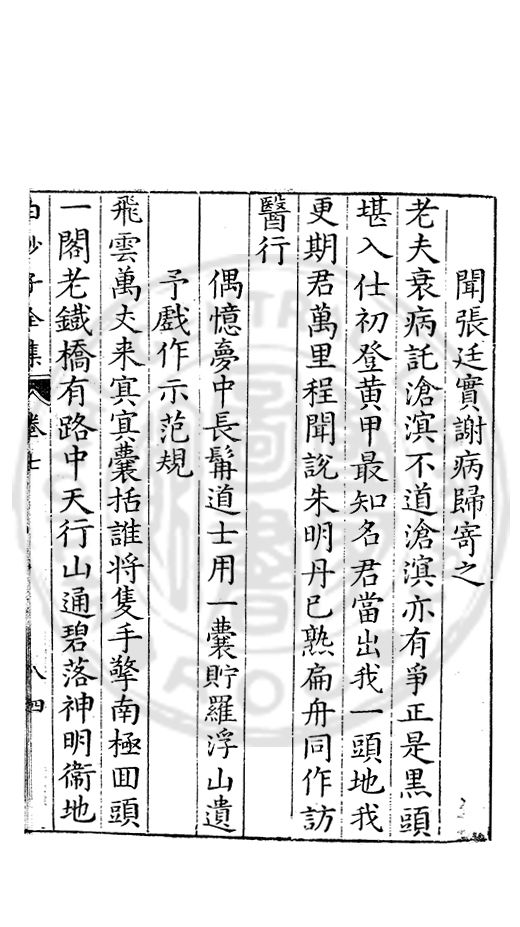 聞張廷實謝病歸寄之
老夫衰病託滄溟不道滄溟亦有爭正是黑頭
堪入仕初登黄甲最知名君當出我一頭地我
更期君萬里程聞說朱明丹已熟扁舟同作訪
醫行
偶憶夢中長髯道士用一囊貯羅浮山遺
予戲作示范規
飛雲萬丈来㝠㝠囊括誰將隻手擎南極囬頭
一閣老鐵橋有路中天行山通碧落神明衞地
白沙子全集 卷七 八四